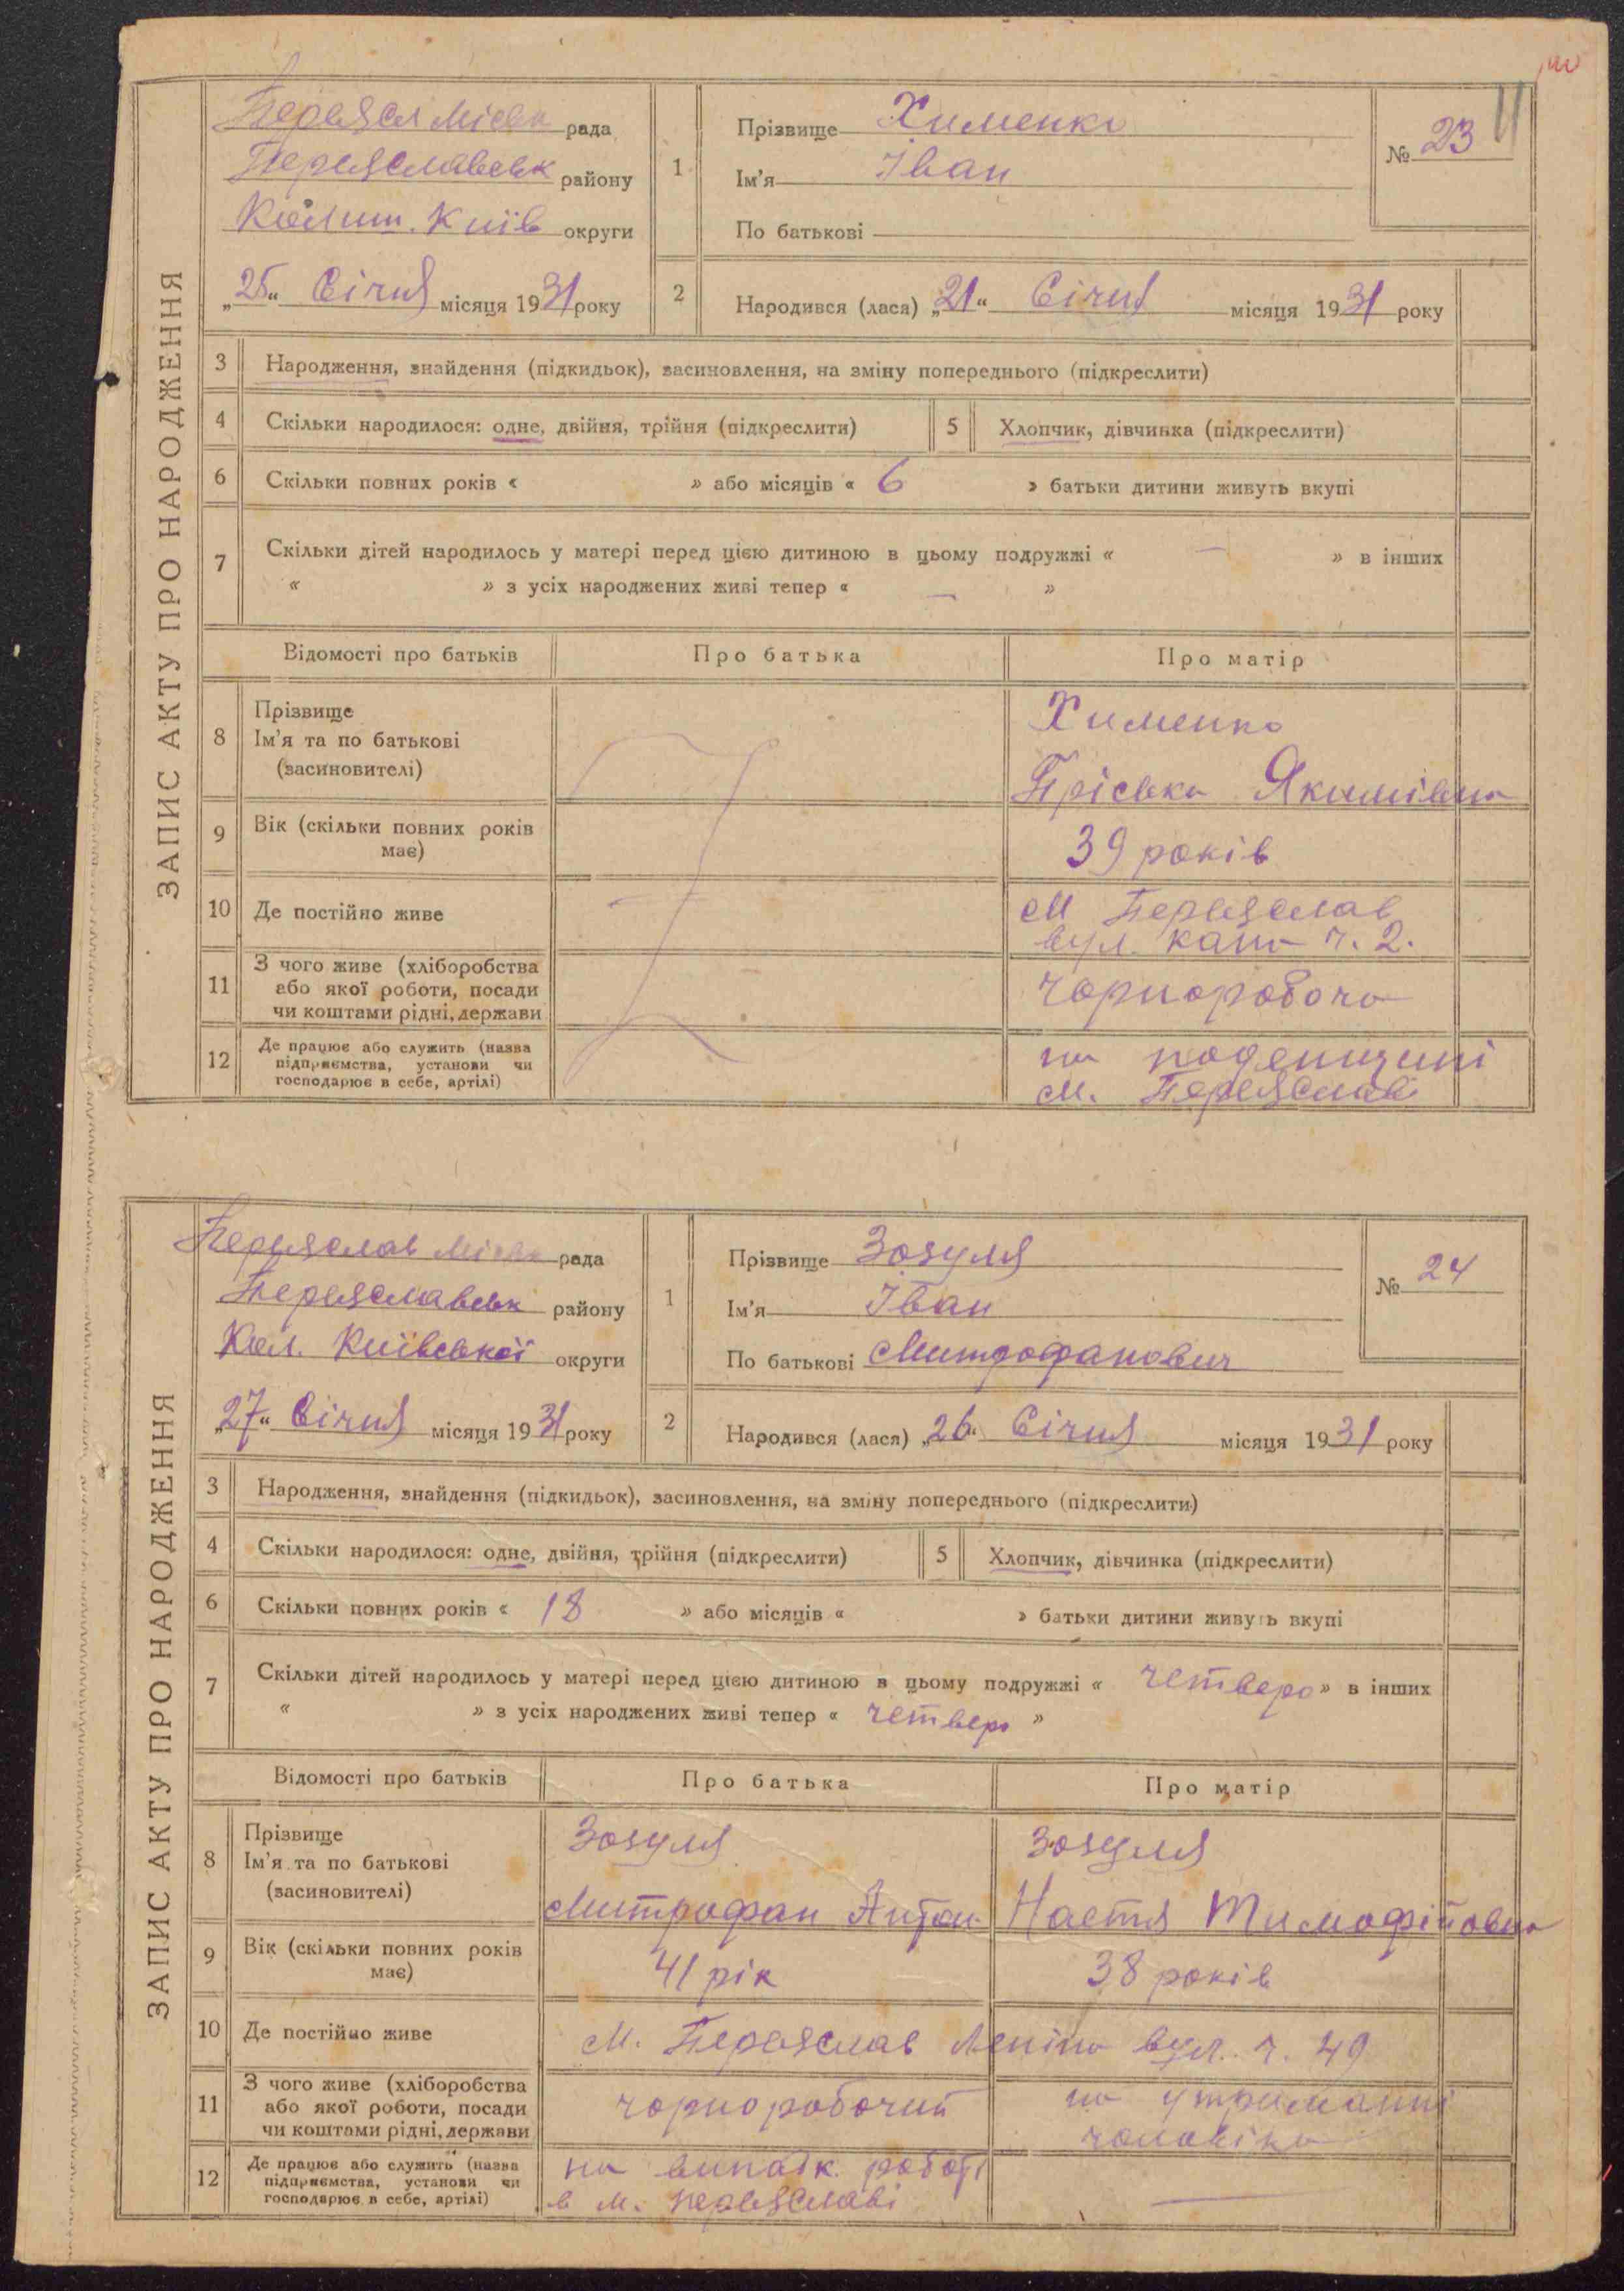 ЗАПИС АКТУ ПРО НАРОДЖЕННЯ
Переясл міськ рада
Переяславськ району
Колиш. Київ округи
„25“ Січня місяця 1931 року
1
Прізвище Хименко
Ім'я Іван
По батькові
№ 23
2
Народився (лася) „21“ Січня місяця 1931 року
3 Народження, знайдення (підкидьок), засиновлення, на зміну попереднього (підкреслити)
4 Скільки народилося: одне, двійня, трійня (підкреслити) 5 Хлопчик, дівчинка (підкреслити)
6 Скільки повних років « » або місяців « 6 » батьки дитини живуть вкупі
7 Скільки дітей народилось у матері перед цією дитиною в цьому подружжі « — » в інших
« » з усіх народжених живі тепер « — »
Відомості про батьків Про батька Про матір
8 Прізвище
Ім'я та по батькові
(засиновителі)
Хименко
Пріська Якимівна
9 Вік (скільки повних років має)
39 років
10 Де постійно живе
м Переяслав
вул. ч. 2.
11 З чого живе (хліборобства
або якої роботи, посади
чи коштами рідні, держави
Чорноробоча
12 Де працює або служить (назва
підприємства, установи чи
господарює в себе, артілі)
на поденщині
м. Переяславі
ЗАПИС АКТУ ПРО НАРОДЖЕННЯ
Переяслав міськ рада
Переяславськ району
Кол. Київської округи
„27“ Січня місяця 1931 року
1
Прізвище Зозуля
Ім'я Іван
По батькові Митрофанович
№ 24
2
Народився (лася) „26“ Січня місяця 1931 року
3 Народження, знайдення (підкидьок), засиновлення, на зміну попереднього (підкреслити)
4 Скільки народилося: одне, двійня, трійня (підкреслити) 5 Хлопчик, дівчинка (підкреслити)
6 Скільки повних років « 18 » або місяців « » батьки дитини живуть вкупі
7 Скільки дітей народилось у матері перед цією дитиною в цьому подружжі « четверо » в інших
« » з усіх народжених живі тепер « четверо »
Відомості про батьків Про батька Про матір
8 Прізвище
Ім'я та по батькові
(засиновителі)
Зозуля Зозуля
Митрофан Антон Настя Тимофіївна
9 Вік (скільки повних років має)
41 рік 38 років
10 Де постійно живе
м. Переяслав Леніна вул. ч. 49
11 З чого живе (хліборобства
або якої роботи, посади
чи коштами рідні, держави
чорноробочий на утриманні
чоловіка
12 Де працює або служить (назва
підприємства, установи чи
господарює в себе, артілі)
на випадк. роботі
в м. Переяславі —